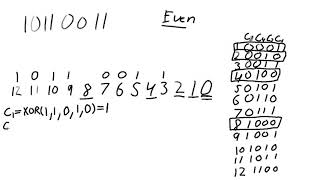 1011 0011 Even
1 0 1 1 0 0 1 1
12 11 10 9 8 7 6 5 4 3 2 1 0
C₁=XOR(1,1,0,1,0)=1
C
C₈C₄C₂C₁
1 0001
2 0010
3 0011
4 0100
5 0101
6 0110
7 0111
8 1000
9 1001
10 1010
11 1011
12 1100